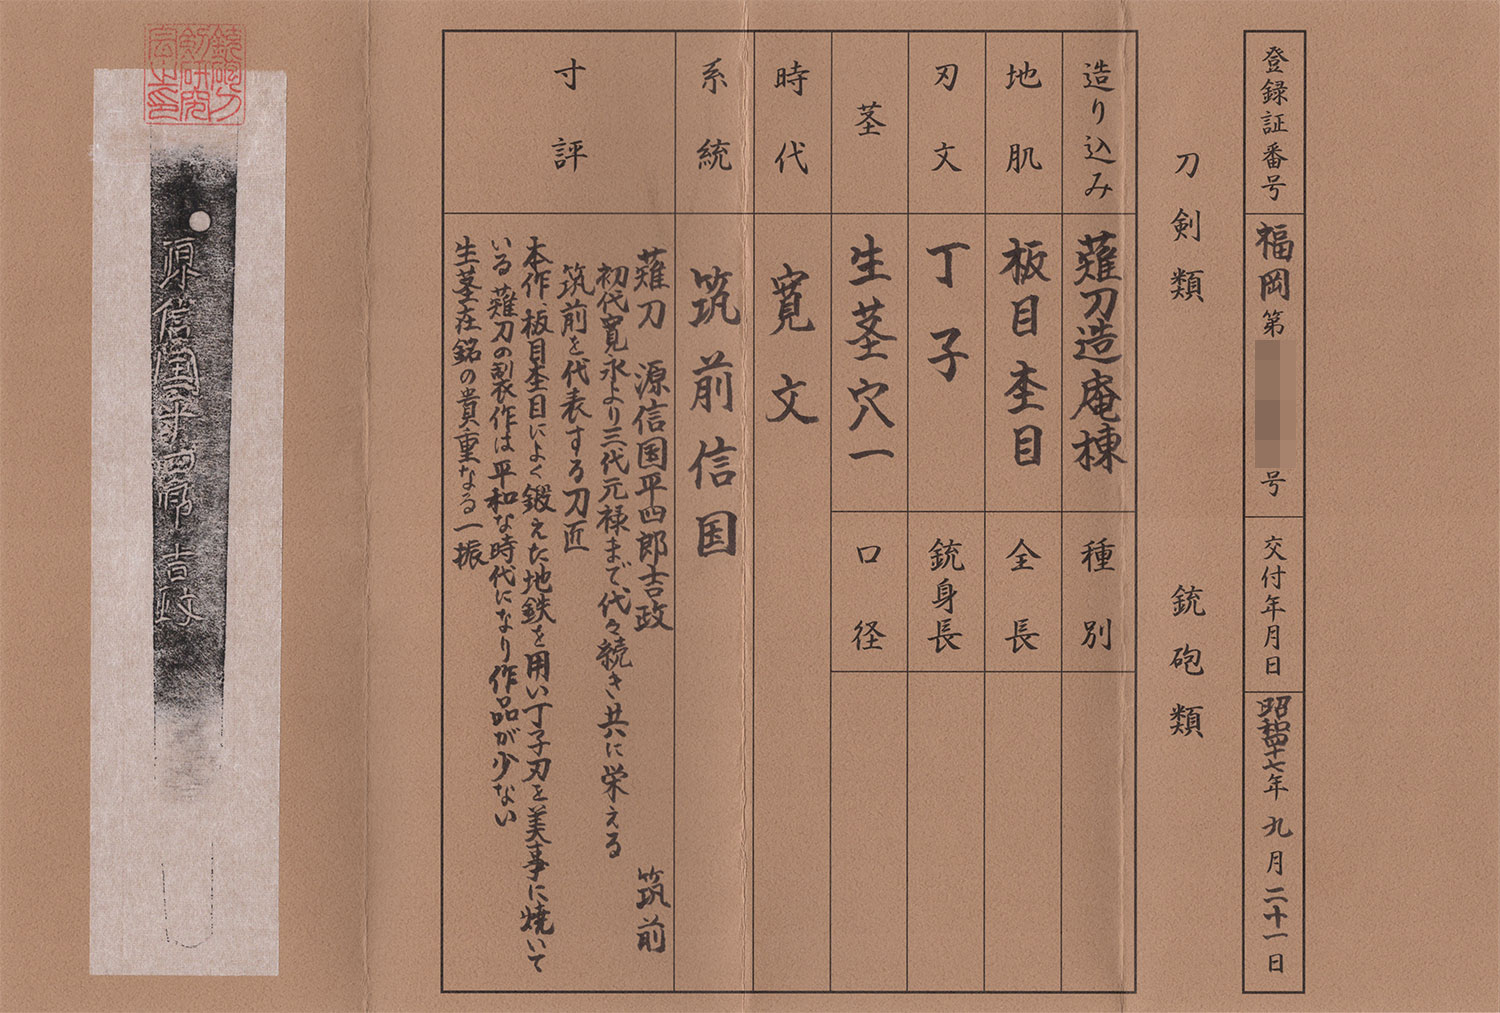 登録証番号 福岡第 号 交付年月日 昭和四十七年九月二十一日
刀剣類 銃砲類
造り込み 薙刀造庵棟 種別
地肌 板目杢目 全長
刃文 丁子 銃身長
茎 生茎穴一 口径
時代 寛文
系統 筑前信国
寸評
薙刀 源信国平四郎吉政 筑前
初代寛永より三代元禄まで代々続き共に栄える
筑前を代表する刀匠
本作、板目杢目によく鍛えた地鉄を用い丁子刃を美事に焼いて
いる 薙刀の製作は平和な時代になり作品が少ない
生茎在銘の貴重なる一振
源信国平四郎吉政